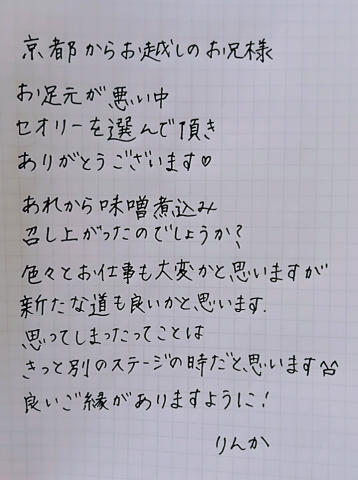 京都からお越しのお兄様
お足元が悪い中
セオリーを選んで頂き
ありがとうございます♡
あれから味噌煮込み
召し上がったのでしょうか?
色々とお仕事も大変かと思いますが
新たな道も良いかと思います.
思ってしまったってことは
きっと別のステージの時だと思います^^
良いご縁がありますように!
りんか